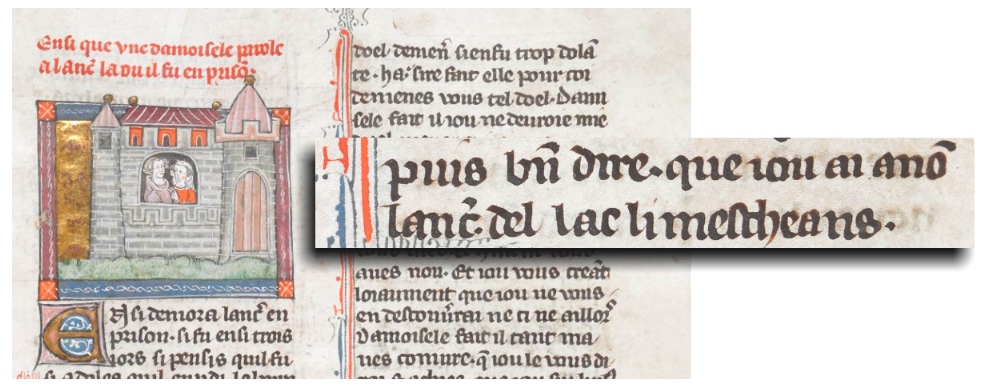 Ensi que vne damoisele parole
a lanc̄ la ou il fu en priso᷒.
Ensi demora lanc̄ en
prison. si fu ensi trois
iors si pensis quil fu
doel demen̄ si en fu trop dolā
te. ha. sire fait elle pour coi
demenes vous tel doel. Dami
sele fait il iou ne deuroie mie
puis bn̄ dire. que iou ai a nō
lanc̄. del lac li mescheans.
aues non. Et iou vous creāt
loiaument que iou ne vous
en desconuerai ne ci ne aillor
Damoisele fait il tant ma
ues coniure. q̄ iou le vous di